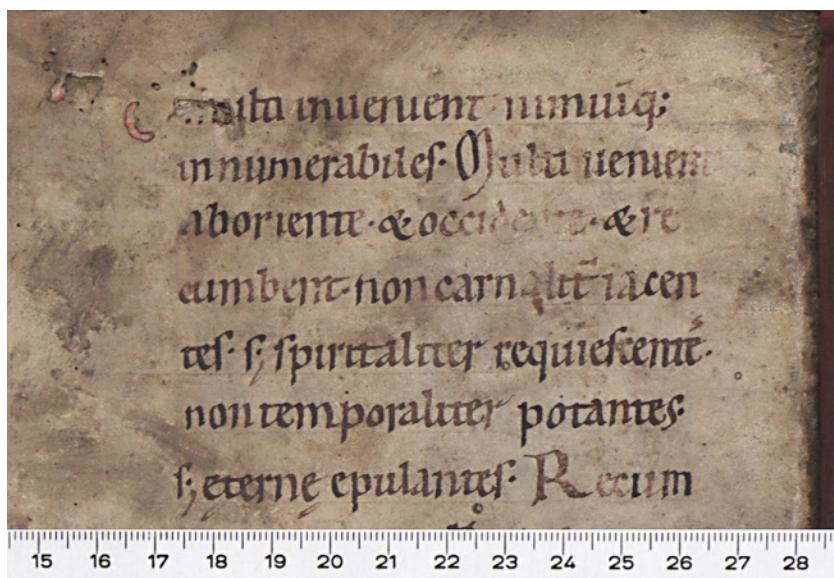 inuenient nimiūq;
innumerabiles· Multi uenient
aboriente· & occidente· & re
cumbent· non carnalit̄ iacen
tes· s; spiritaliter requiescentē·
non temporaliter potantes·
s; ęternę epulantes· Recum
15 16 17 18 19 20 21 22 23 24 25 26 27 28